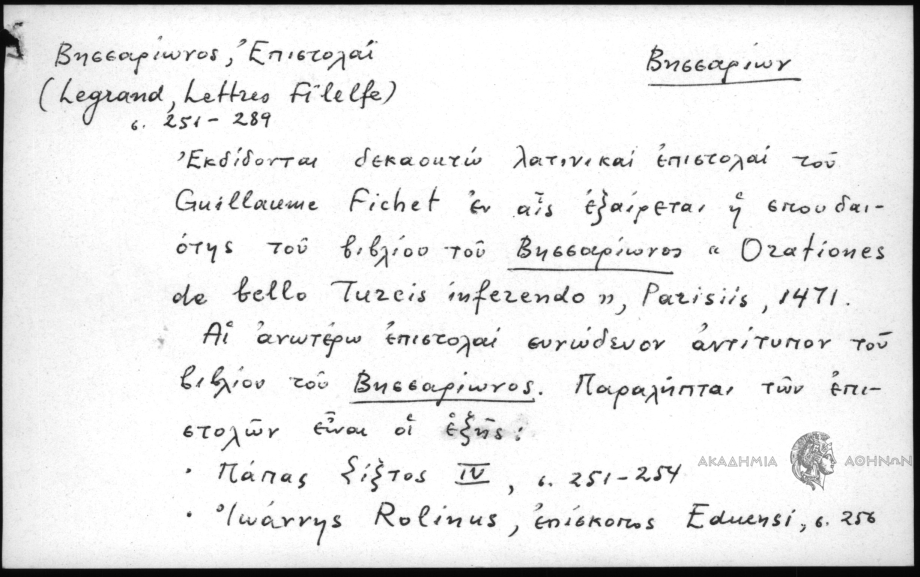 Βησσαρίωνος, Ἐπιστολαί
Βησσαρίων
(Legrand, Lettres Filelfe)
σ. 251-289
Ἐκδίδονται δεκαοκτώ λατινικαί ἐπιστολαί τοῦ
Guillaume Fichet ἐν αἷς ἐξαίρεται ἡ σπουδαι-
ότης τοῦ βιβλίου τοῦ Βησσαρίωνος « Orationes
de bello Turcis inferendo », Parisiis, 1471.
Αἱ ἀνωτέρω ἐπιστολαί συνώδευον ἀντίτυπον τοῦ
βιβλίου τοῦ Βησσαρίωνος. Παραλήπται τῶν ἐπι-
στολῶν εἶναι οἱ ἑξῆς:
· Πάπας Σίξτος IV, σ. 251-254
· Ἰωάννης Rolinus, ἐπίσκοπος Eduensi, σ. 256
ΑΚΑΔΗΜΙΑ ΑΘΗΝΩΝ